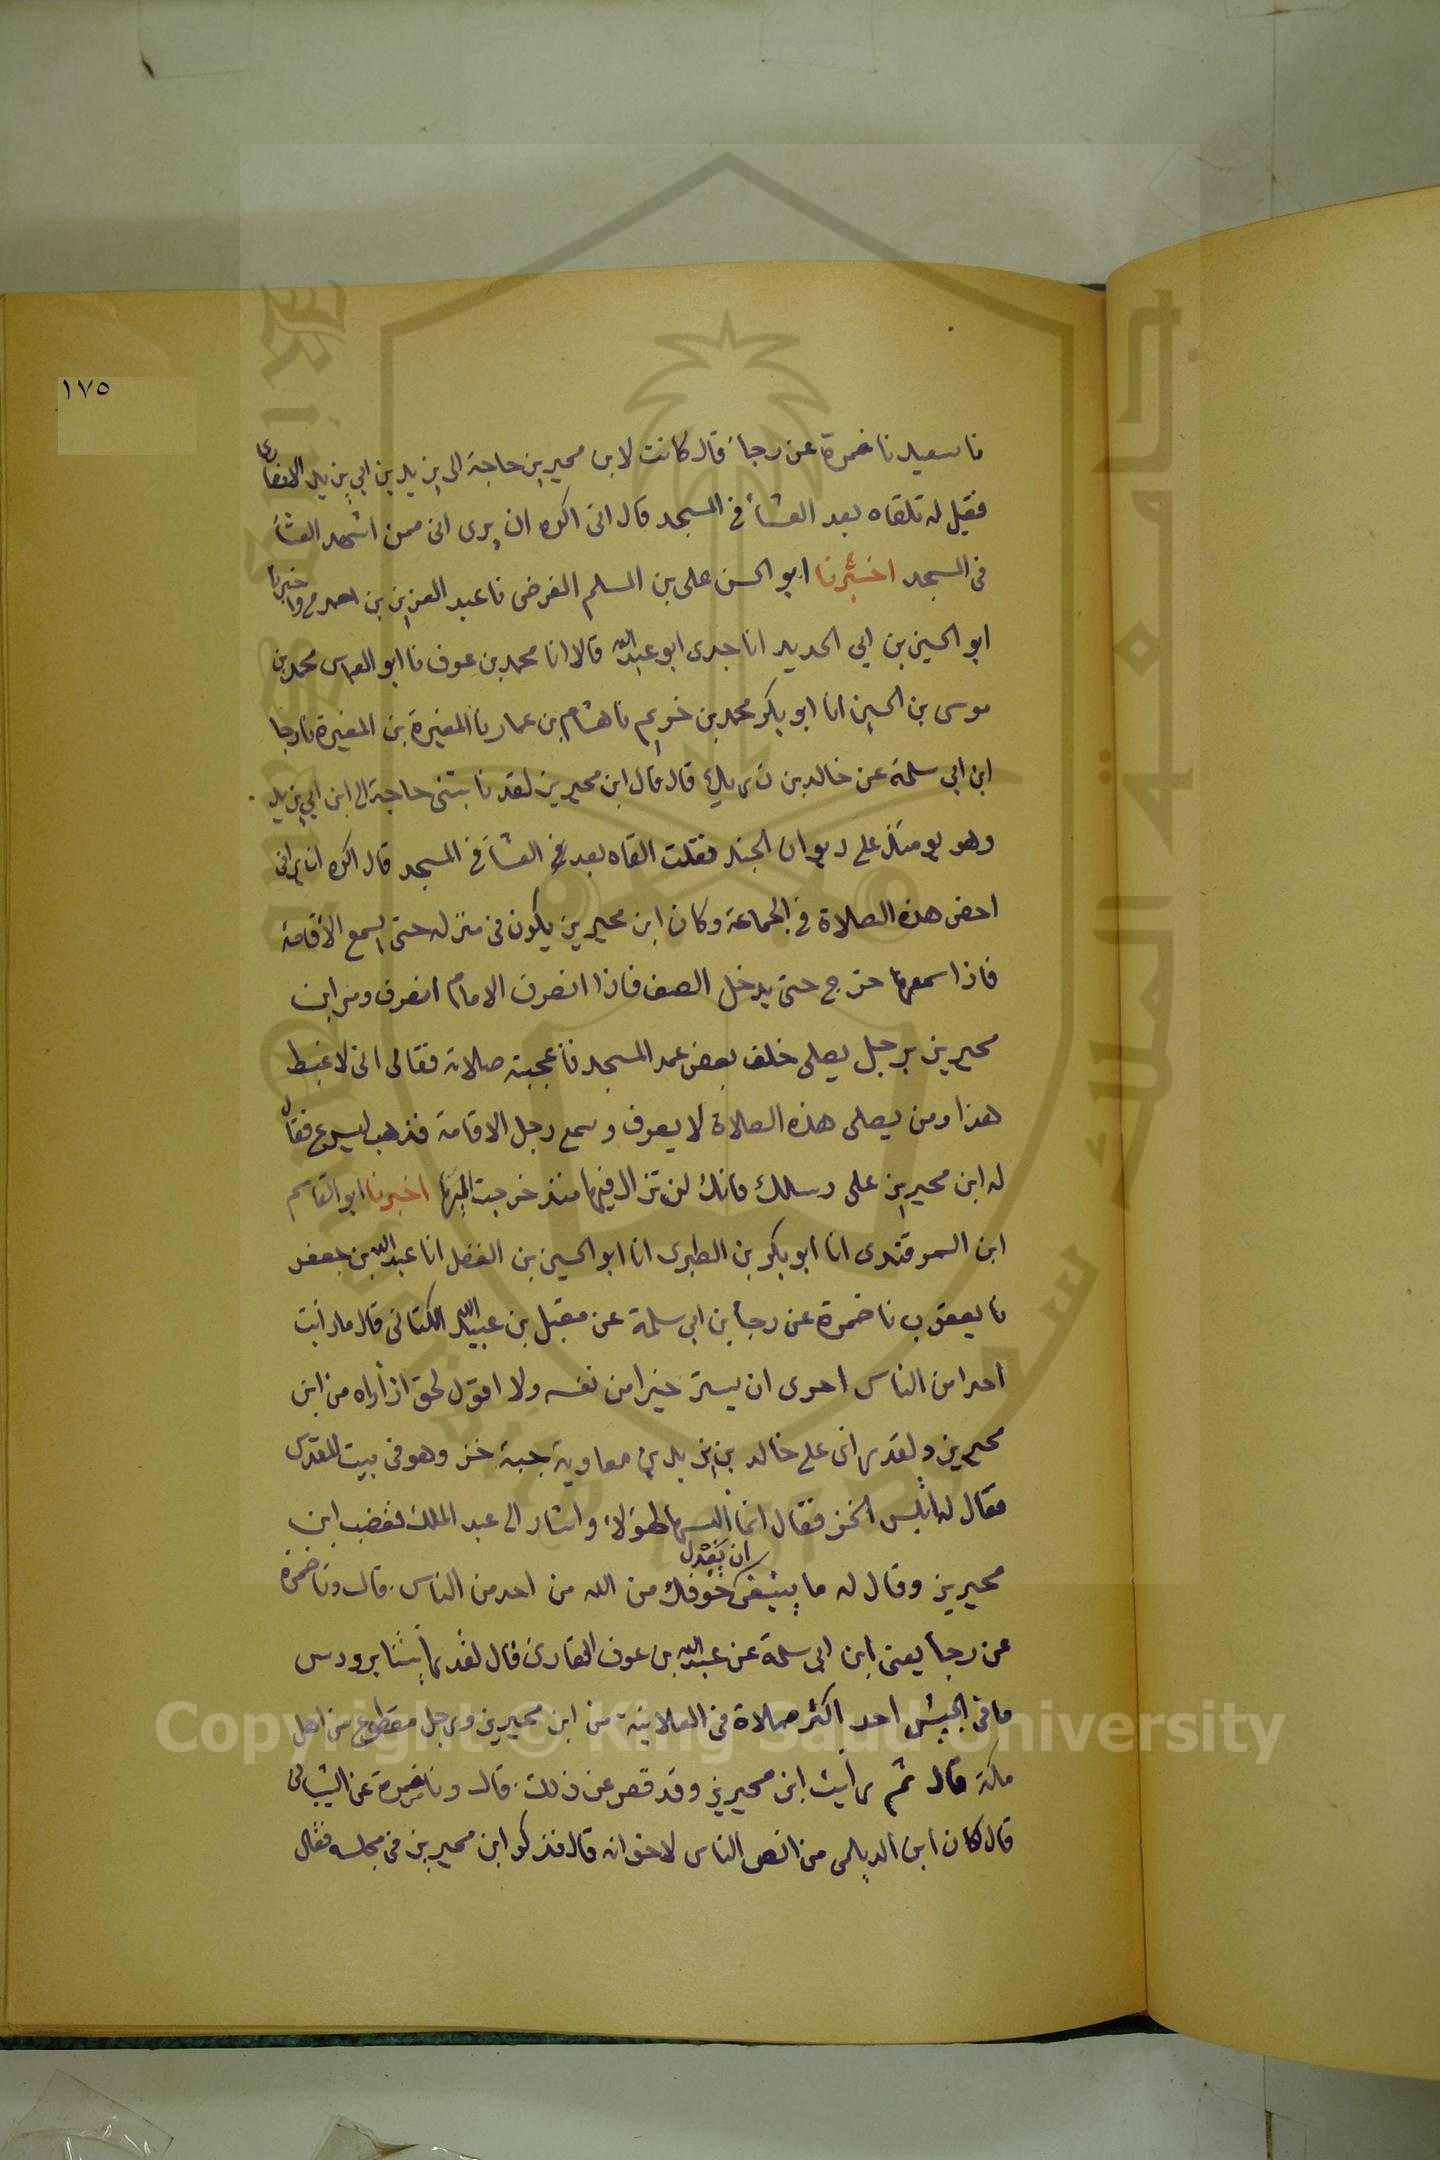 ١٧٥
نا سعيد نا ضمرة عن رجا قال كانت لابن محيريز حاجة الى يزيد بن ابي يزيد الانصاري
فقيل له تلقاه بعد العشاء في المسجد قال انى اكره ان يرى انى ممن اشهد العشاء
فى المسجد اخبرنا ابو الحسن على بن المسلم الفرضى نا عبد العزيز بن احمد ح واخبرنا
ابو الحسين بن ابي الحديد انا جدى ابو عبد الله قالا انا محمد بن عوف نا ابو العباس محمد بن
موسى بن الحسين انا ابو بكر محمد بن خريم نا هشام بن عمار نا المغيرة بن المغيرة نا رجا
ابن ابي سلمة عن خالد بن دريك قال قال ابن محيريز لقد نابتنى حاجة الى ابن ابي يزيد
وهو يومئذ على ديوان الجند فقلت القاه بعد في العشاء في المسجد قال اكره ان يرانى
احضر هذه الصلاة في الجماعة وكان ابن محيريز يكون في منزله حتى يسمع الاقامة
فاذا سمعها خرج حتى يدخل الصف فاذا انصرف الامام انصرف ومر ابن
محيريز برجل يصلى خلف بعض عمد المسجد فاعجبته صلاته فقال انى لاغبط
هذا ومن يصلى هذه الصلاة لا يعرف وسمع رجل الاقامة فذهب ليسرع فقال
له ابن محيريز على رسلك فانك لن تزال فيها منذ خرجت اليها اخبرنا ابو القاسم
ابن السمرقندى انا ابو بكر بن الطبرى انا ابو الحسين بن الفضل انا عبد الله بن جعفر
نا يعقوب نا ضمرة عن رجا بن ابي سلمة عن مقبل بن عبد الله الكنانى قال ما رأيت
احدا من الناس احرى ان يستر خيرا من نفسه ولا اقول لحق اذا راه من ابن
محيريز ولقد راى على خالد بن يزيد بن معاوية جبة خز وهو فى بيت المقدس
فقال له اتلبس الخز فقال انما البسها لهؤلاء واشار الى عبد الملك فغضب ابن
محيريز وقال له ما ينبغى ان يعدل خوفك من الله من احد من الناس. قال ونا ضمرة
عن رجا يعنى ابن ابى سلمة عن عبد الله بن عوف القارئ قال لقد رأيتنا برودس
وما فى الجيش احد اكثر صلاة فى العلانية من ابن محيريز ورجل مقطوع من اهل
مكة قال ثم رأيت ابن محيريز وقد قصر عن ذلك. قال ونا ضمرة عن الشيبانى
قال كان ابن الديلمى من انصر الناس لاخوانه قال فذكر ابن محيريز فى مجلسه فقال
Copyright © King Saud University